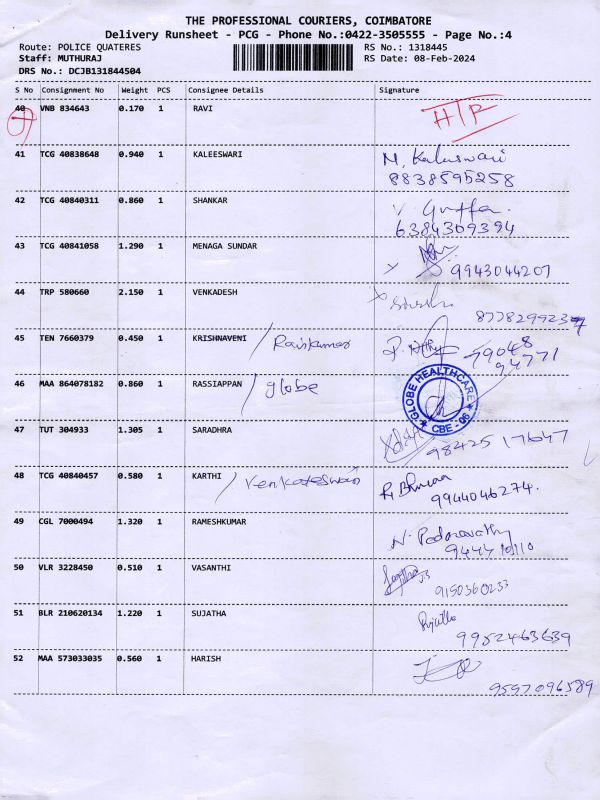 THE PROFESSIONAL COURIERS, COIMBATORE
Delivery Runsheet - PCG - Phone No.:0422-3505555 - Page No.:4
Route: POLICE QUATERES RS No.: 1318445
Staff: MUTHURAJ RS Date: 08-Feb-2024
DRS No.: DCJB131844504
S No Consignment No Weight PCS Consignee Details Signature
40 VNB 834643 0.170 1 RAVI H/R
41 TCG 40838648 0.940 1 KALEESWARI M. Kaleeswari
8838595258
42 TCG 40840311 0.860 1 SHANKAR V
6384309394
43 TCG 40841058 1.290 1 MENAGA SUNDAR
9943044207
44 TRP 580660 2.150 1 VENKADESH
45 TEN 7660379 0.450 1 KRISHNAVENI / Rajkumar 79048
94771
46 MAA 864078182 0.860 1 RASSIAPPAN / globe
GLOBE HEALTHCARE
★ CBE - 06 ★
47 TUT 304933 1.305 1 SARADHRA
98425 17647
48 TCG 40840457 0.580 1 KARTHI / Venkateswain
9944046274.
49 CGL 7000494 1.320 1 RAMESHKUMAR N.
50 VLR 3228450 0.510 1 VASANTHI
9150360233
51 BLR 210620134 1.220 1 SUJATHA Sujatha
9952463639
52 MAA 573033035 0.560 1 HARISH
9597096589